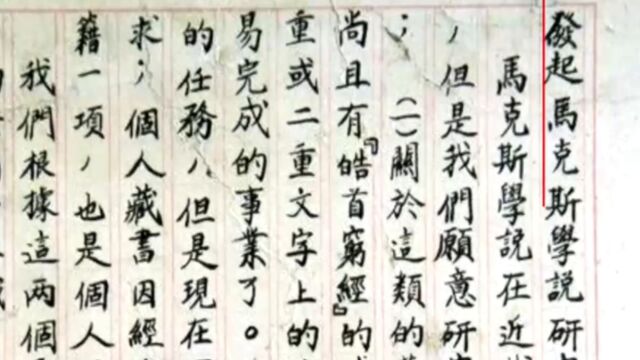 發起馬克斯學説研
馬克斯學説在近
，但是我們願意研
；（一）關於這類的
尚且有『皓首窮經』的
重或二重文字上的
易完成的事業了。
的任務，但是現在
求；個人藏書因經
籍一項，也是個人
我們根據這兩個